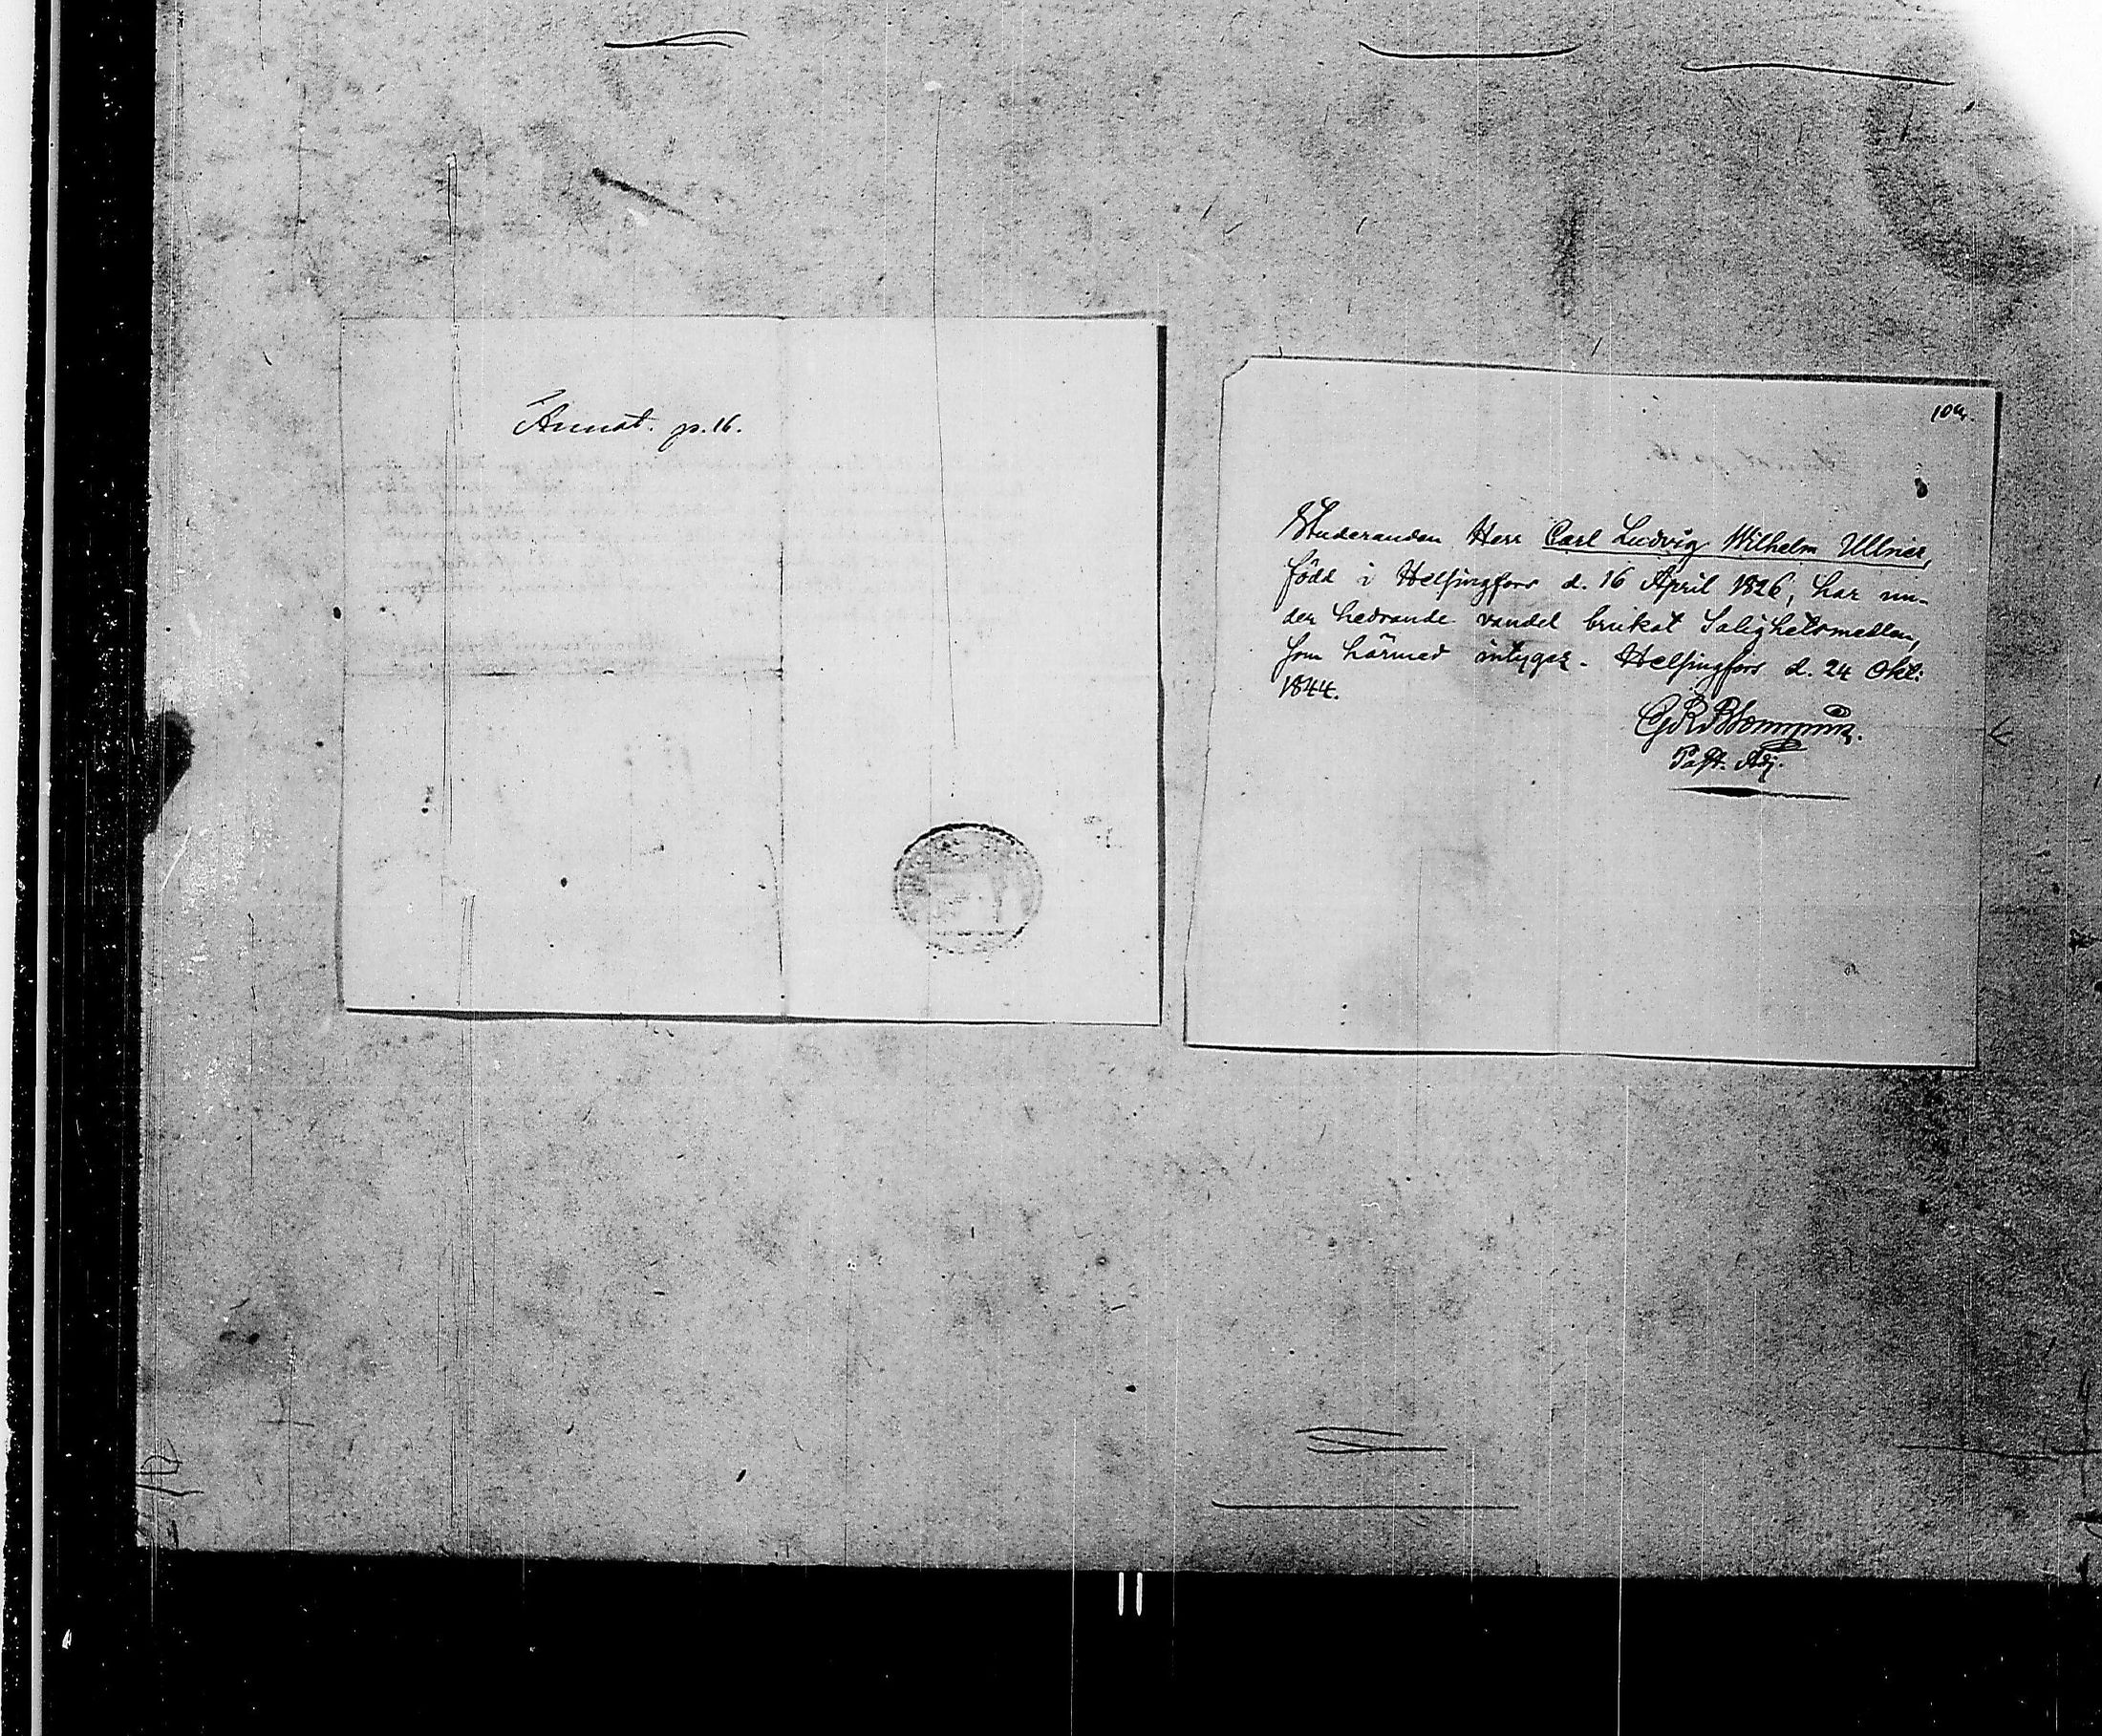 Annot. p. 16.
10 a.
Studeranden Herr Carl Ludvig Wilhelm Ullner,
född i Helsingfors d. 16 April 1826, har un-
der hedrande vandel brukat Salighetsmedlen,
som härmed intygar. Helsingfors d. 24 Okt:
1844.
Past. Adj.